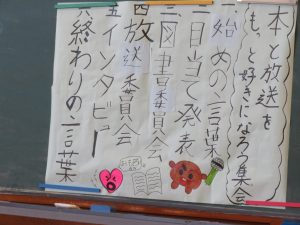 本と放送を
もっと好きになろう集会
一 始めの言葉
二 目当て発表
三 図書委員会
四 放送委員会
五 インタビュー
六 終わりの言葉